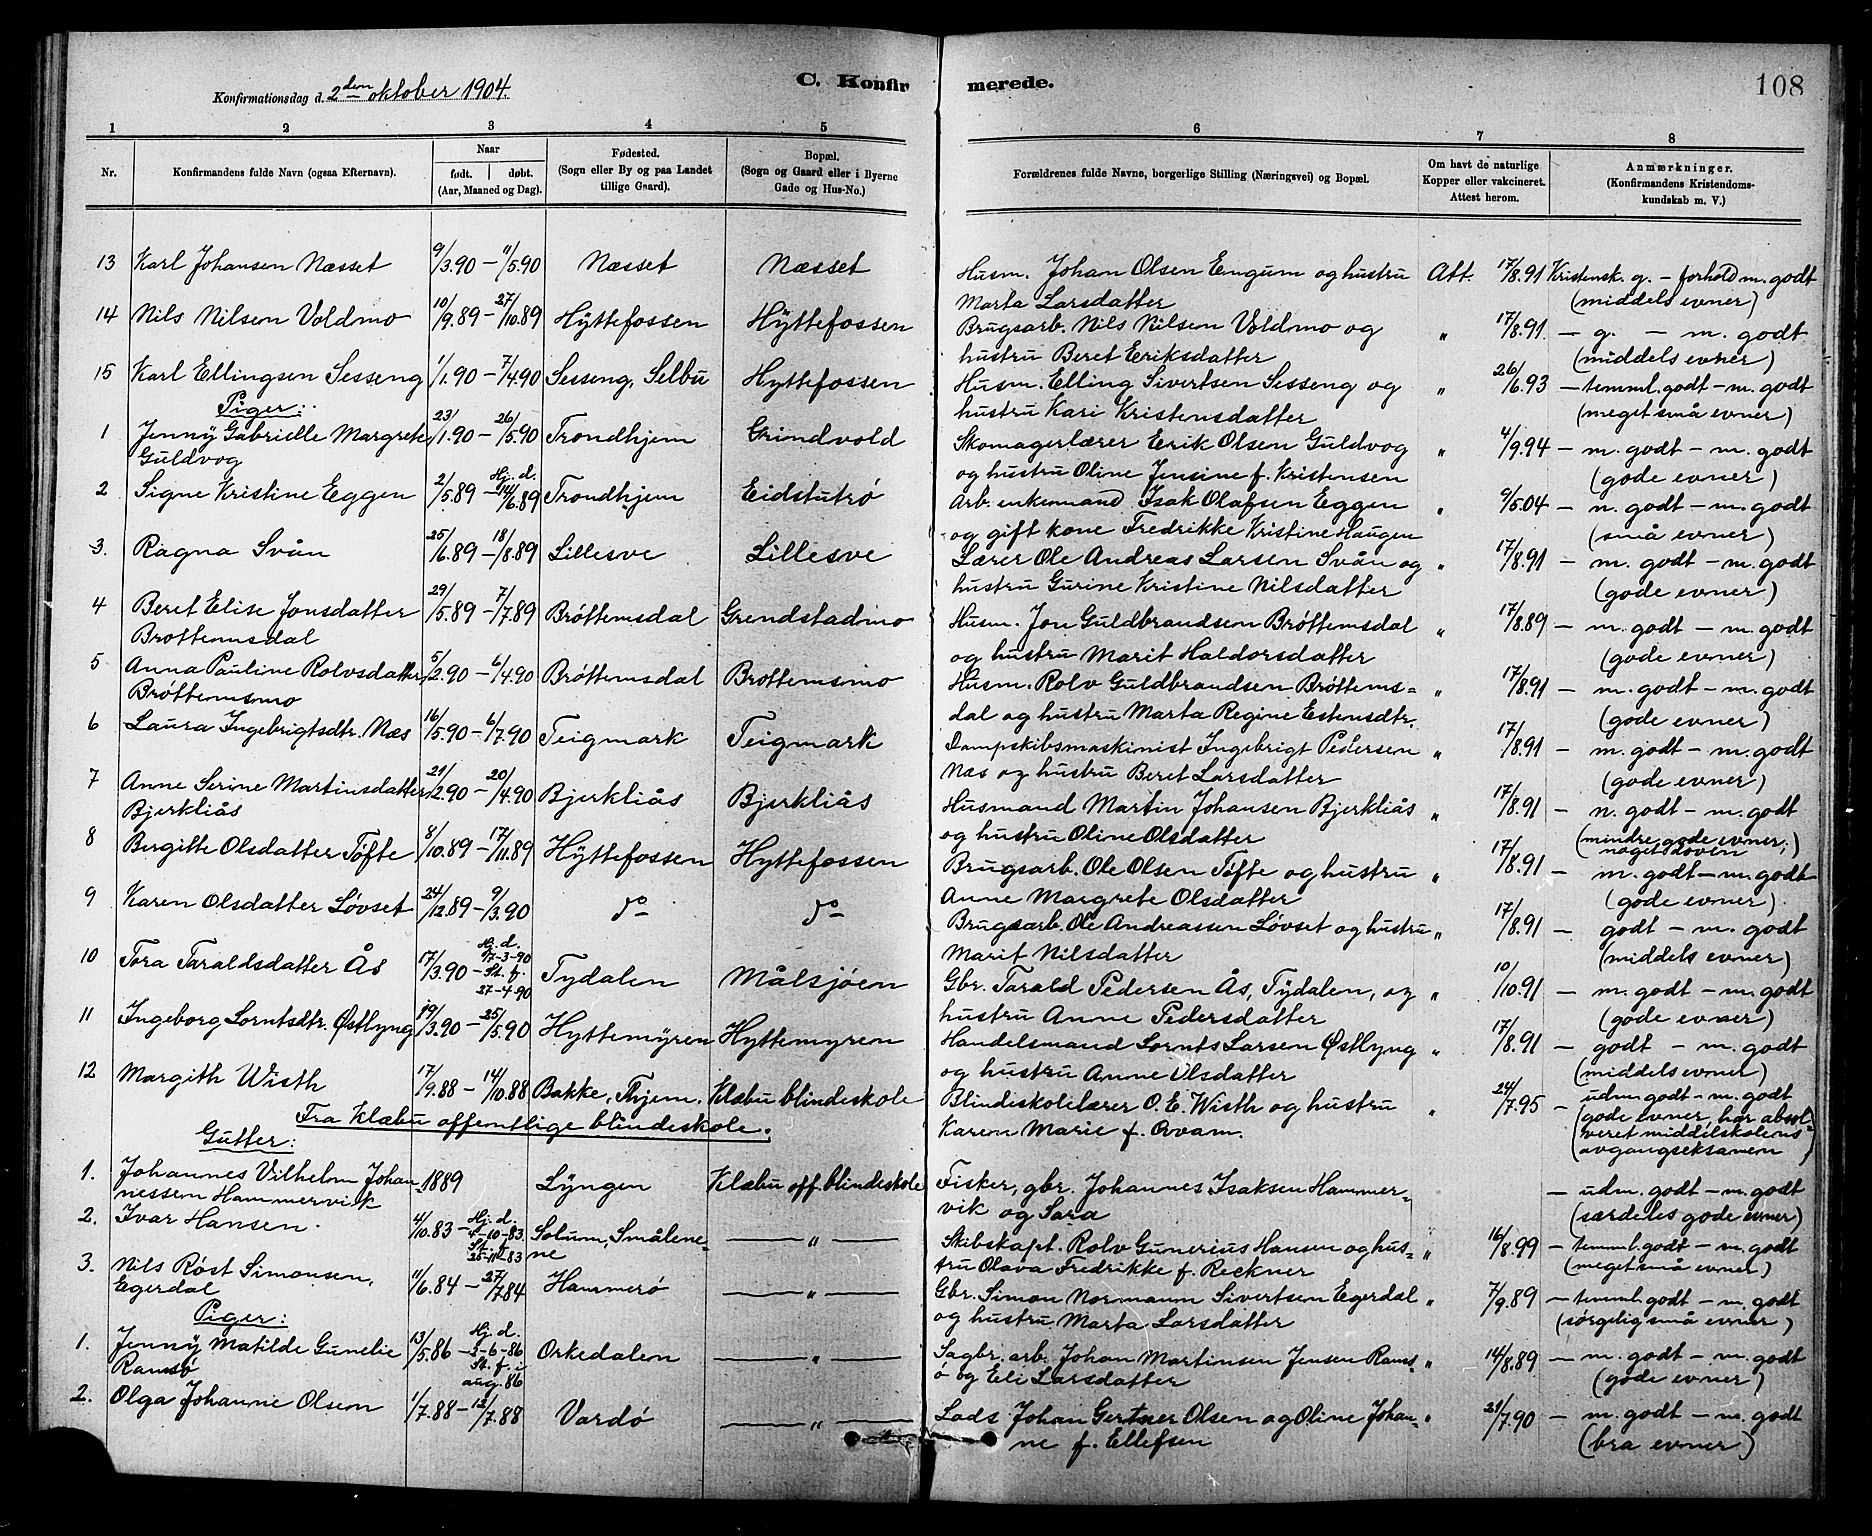 Konfirmationsdag d. 2den oktober 1904.
C. Konfirmerede.
108
1 2 3 4 5 6 7 8
Nr. Konfirmandens fulde Navn (ogsaa Efternavn). Naar født. døbt. (Aar, Maaned og Dag). Fødested. (Sogn eller By og paa Landet tillige Gaard). Bopæl. (Sogn og Gaard eller i Byerne Gade og Hus-No.) Forældrenes fulde Navne, borgerlige Stilling (Næringsvei) og Bopæl. Om havt de naturlige Kopper eller vakcineret. Attest herom. Anmærkninger. (Konfirmandens Kristendomskundskab m. V.)
13 Karl Johansen Næsset 9/3.90 – 11/5.90 Næsset Næsset Husm. Johan Olsen Engum og hustru Att. 17/8.91 Kristensk. g. – forhold m. godt
Marta Larsdatter (middels evner)
14 Nils Nilsen Voldmo 10/9.89 – 27/10.89 Hÿttefossen Hÿttefossen Brugsarb. Nils Nilsen Voldmo og " 17/8.91 – g. – m. godt
hustru Beret Eriksdatter (middels evner)
15 Karl Ellingsen Sesseng 1/1.90 – 7/4.90 Sesseng, Selbu Hyttefossen Husm. Elling Sivertsen Sesseng og " 26/6.93 – temml. godt – m. godt
hustru Kari Kristensdatter (meget små evner)
Piger:
1 Jenny Gabrielle Margrete 23/1.90 – 26/5.90 Trondhjem Grindvold Skomagerlærer Erik Olsen Guldvog " 4/9.94 – m. godt – m. godt
Guldvog og hustru Oline Jensine f. Kristensen (gode evner)
2 Signe Kristine Eggen 2/5.89 – Hj. d. 14/6.89 Trondhjem Eidstutrø Arb. enkemand Isak Olafsen Eggen " 9/5.04 – n. godt – m. godt
og gift kone Fredrikke Kristine Haugen (små evner)
3. Ragna Svån 25/6.89 – 18/8.89 Lillesve Lillesve Lærer Ole Andreas Larsen Svån og " 17/8.91 – m. godt – m. godt
hustru Gurine Kristine Nilsdatter (gode evner)
4 Beret Elise Jonsdatter 29/5.89 – 7/7.89 Brøttemsdal Grendstadmo Husm. Jon Guldbrandsen Brøttemsdal " 17/8.89 – m. godt – m. godt
Brøttemsdal og hustru Marit Haldorsdatter (gode evner)
5 Anna Pauline Rolvsdatter 5/2.90 – 6/4.90 Brøttemsdal Brøttemsmo Husm. Rolv Guldbrandsen Brøttems= " 17/8.91 – m. godt – m. godt
Brøttemsmo dal og hustru Marta Regine Estensdtr. (gode evner)
6 Laura Ingebrigtsdtr. Næs 16/5.90 – 6/7.90 Teigmark Teigmark Dampskibsmaskinist Ingebrigt Pedersen " 17/8.91 – m. godt – m. godt
Næs og hustru Beret Larsdatter (gode evner)
7 Anne Serine Martinsdatter 21/2.90 – 20/4.90 Bjerkliås Bjerkliås Husmand Martin Johansen Bjerkliås " 17/8.91 – n. godt – m. godt
Bjerkliås og hustru Oline Olsdatter (mindre gode evner; noget døven)
8 Bergitte Olsdatter Tøfte 8/10.89 – 17/11.89 Hÿttefossen Hyttefossen Brugsarb. Ole Olsen Tøfte og hustru " 17/8.91 – m. godt – m. godt
Anne Margrete Olsdatter (gode evner)
9 Karen Olsdatter Løvset 24/12.89 – 9/3.90 do do Brugsarb. Ole Andreassen Løvset og hustru " 17/8.91 – godt – m. godt
Marit Nilsdatter (middels evner)
10 Tora Taraldsdatter Ås 17/3.90 – Hj. d. 17-3-90 St. f. 27-4-90 Tydalen Målsjøen Gbr. Tarald Pedersen Ås, Tydalen, og " 10/10.91 – m. godt – m. godt
hustru Anne Pedersdatter (gode evner)
11 Ingeborg Lorntsdtr. Østlyng 19/3.90 – 25/5.90 Hyttemÿren Hyttemyren Handelsmand Lornts Larsen Østlyng " 17/8.91 – godt – m. godt
og hustru Anne Olsdatter (middels evner)
12 Margith Wisth 17/9.88 – 14/10.88 Bakke, Thjem. Klæbu blindeskole Blindeskolelærer O. E. Wisth og hustru " 24/7.95 – udm. godt – m. godt
Karen Marie f. Qvam. (gode evner, har absol=
veret middelskolens
avgangseksamen)
Fra Klæbu offentlige blindeskole.
Gutter:
1. Johannes Vilhelm Johan 1889 Lÿngen Klæbu off. blindeskole Fisker, gbr. Johannes Isaksen Hammer= – udm. godt – m. godt
nessen Hammervik vik og Sara (særdeles gode evner)
2. Ivar Hansen 4/10.83 – Hj. d. 4-10-83. St. f. 25-11-83 Solum, Smålene= ne — " — Skibskapt. Rolv Gunerius Hansen og hus= " 16/8.99 – temml. godt – m. godt
tru Olava Fredrikke f. Reckner (meget små evner)
3. Nils Røst Simonsen, 11/6.84 – 27/7.84 Hammerø — " — Gbr. Simon Normann Sivertsen Egerdal " 7/9.89 – temml. godt – m. godt
Egerdal og hustru Marta Larsdatter (sørgelig små evner)
Piger:
1. Jenny Matilde Gunelie 13/5.86 – Hj. d. 3-6-86 St. f. i aug. 86 Orkedalen — " — Sagbr. arb. Johan Martinsen Jensen Rams " 14/8.89 – m. godt – m. godt
Ramsø ø og Eli Larsdatter (gode evner)
2. Olga Johanne Olsen 1/7.88 – 12/7.88 Vardø — " — Lods Johan Gertner Olsen og Oline Johan= " 21/7.90 – m. godt – m. godt
ne f. Ellefsen (bra evner)